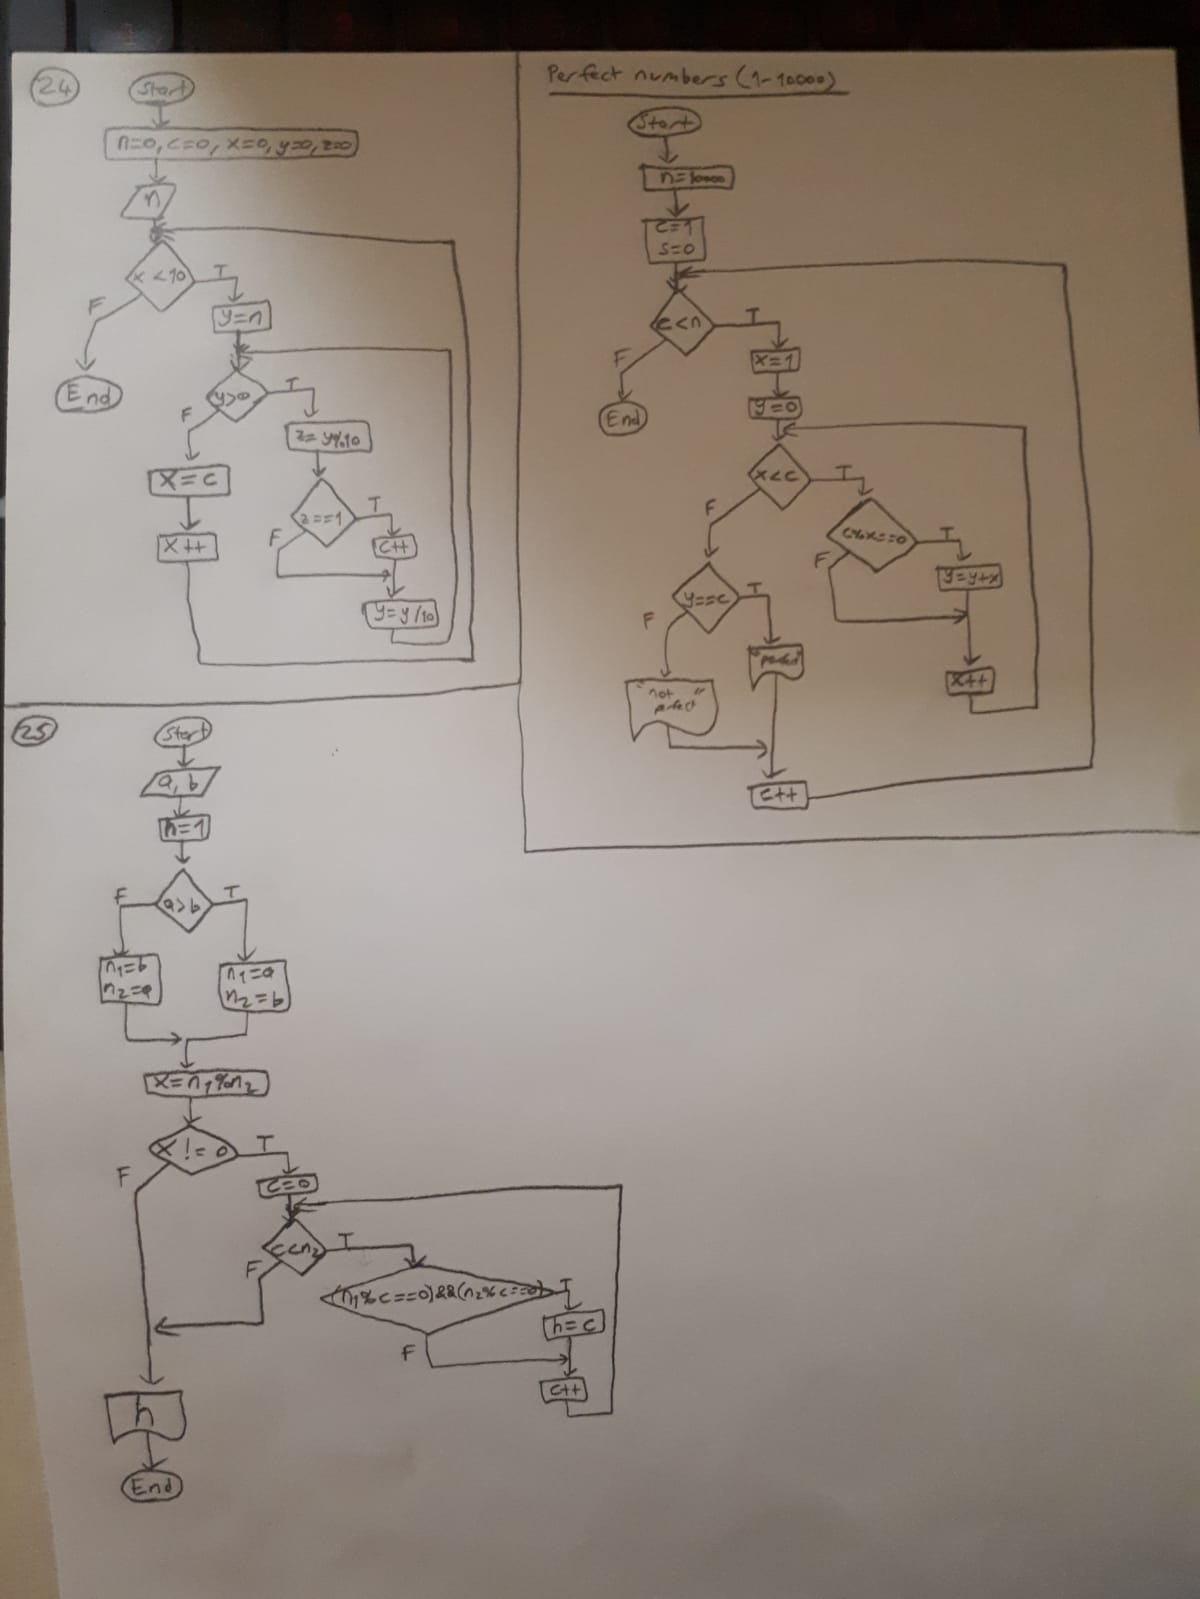 24
Start
n=0, c=0, x=0, y=0, z=0
n
x<10
T
F
y=n
End
y>0
T
F
z=y%10
x=c
z==1
T
F
x++
c++
y=y/10
Perfect numbers (1-10000)
Start
n=10000
c=1
s=0
c<n
T
F
x=1
End
y=0
x<c
T
F
c%x==0
T
F
y=y+x
y==c
T
F
"perfect"
x++
"not
perfect"
c++
25
Start
a, b
h=1
a>b
F
T
n1=b
n2=a
n1=a
n2=b
x=n1%n2
x!=0
T
F
c=0
c<n2
T
F
(n1%c==0)&&(n2%c==0)
T
h=c
F
c++
h
End